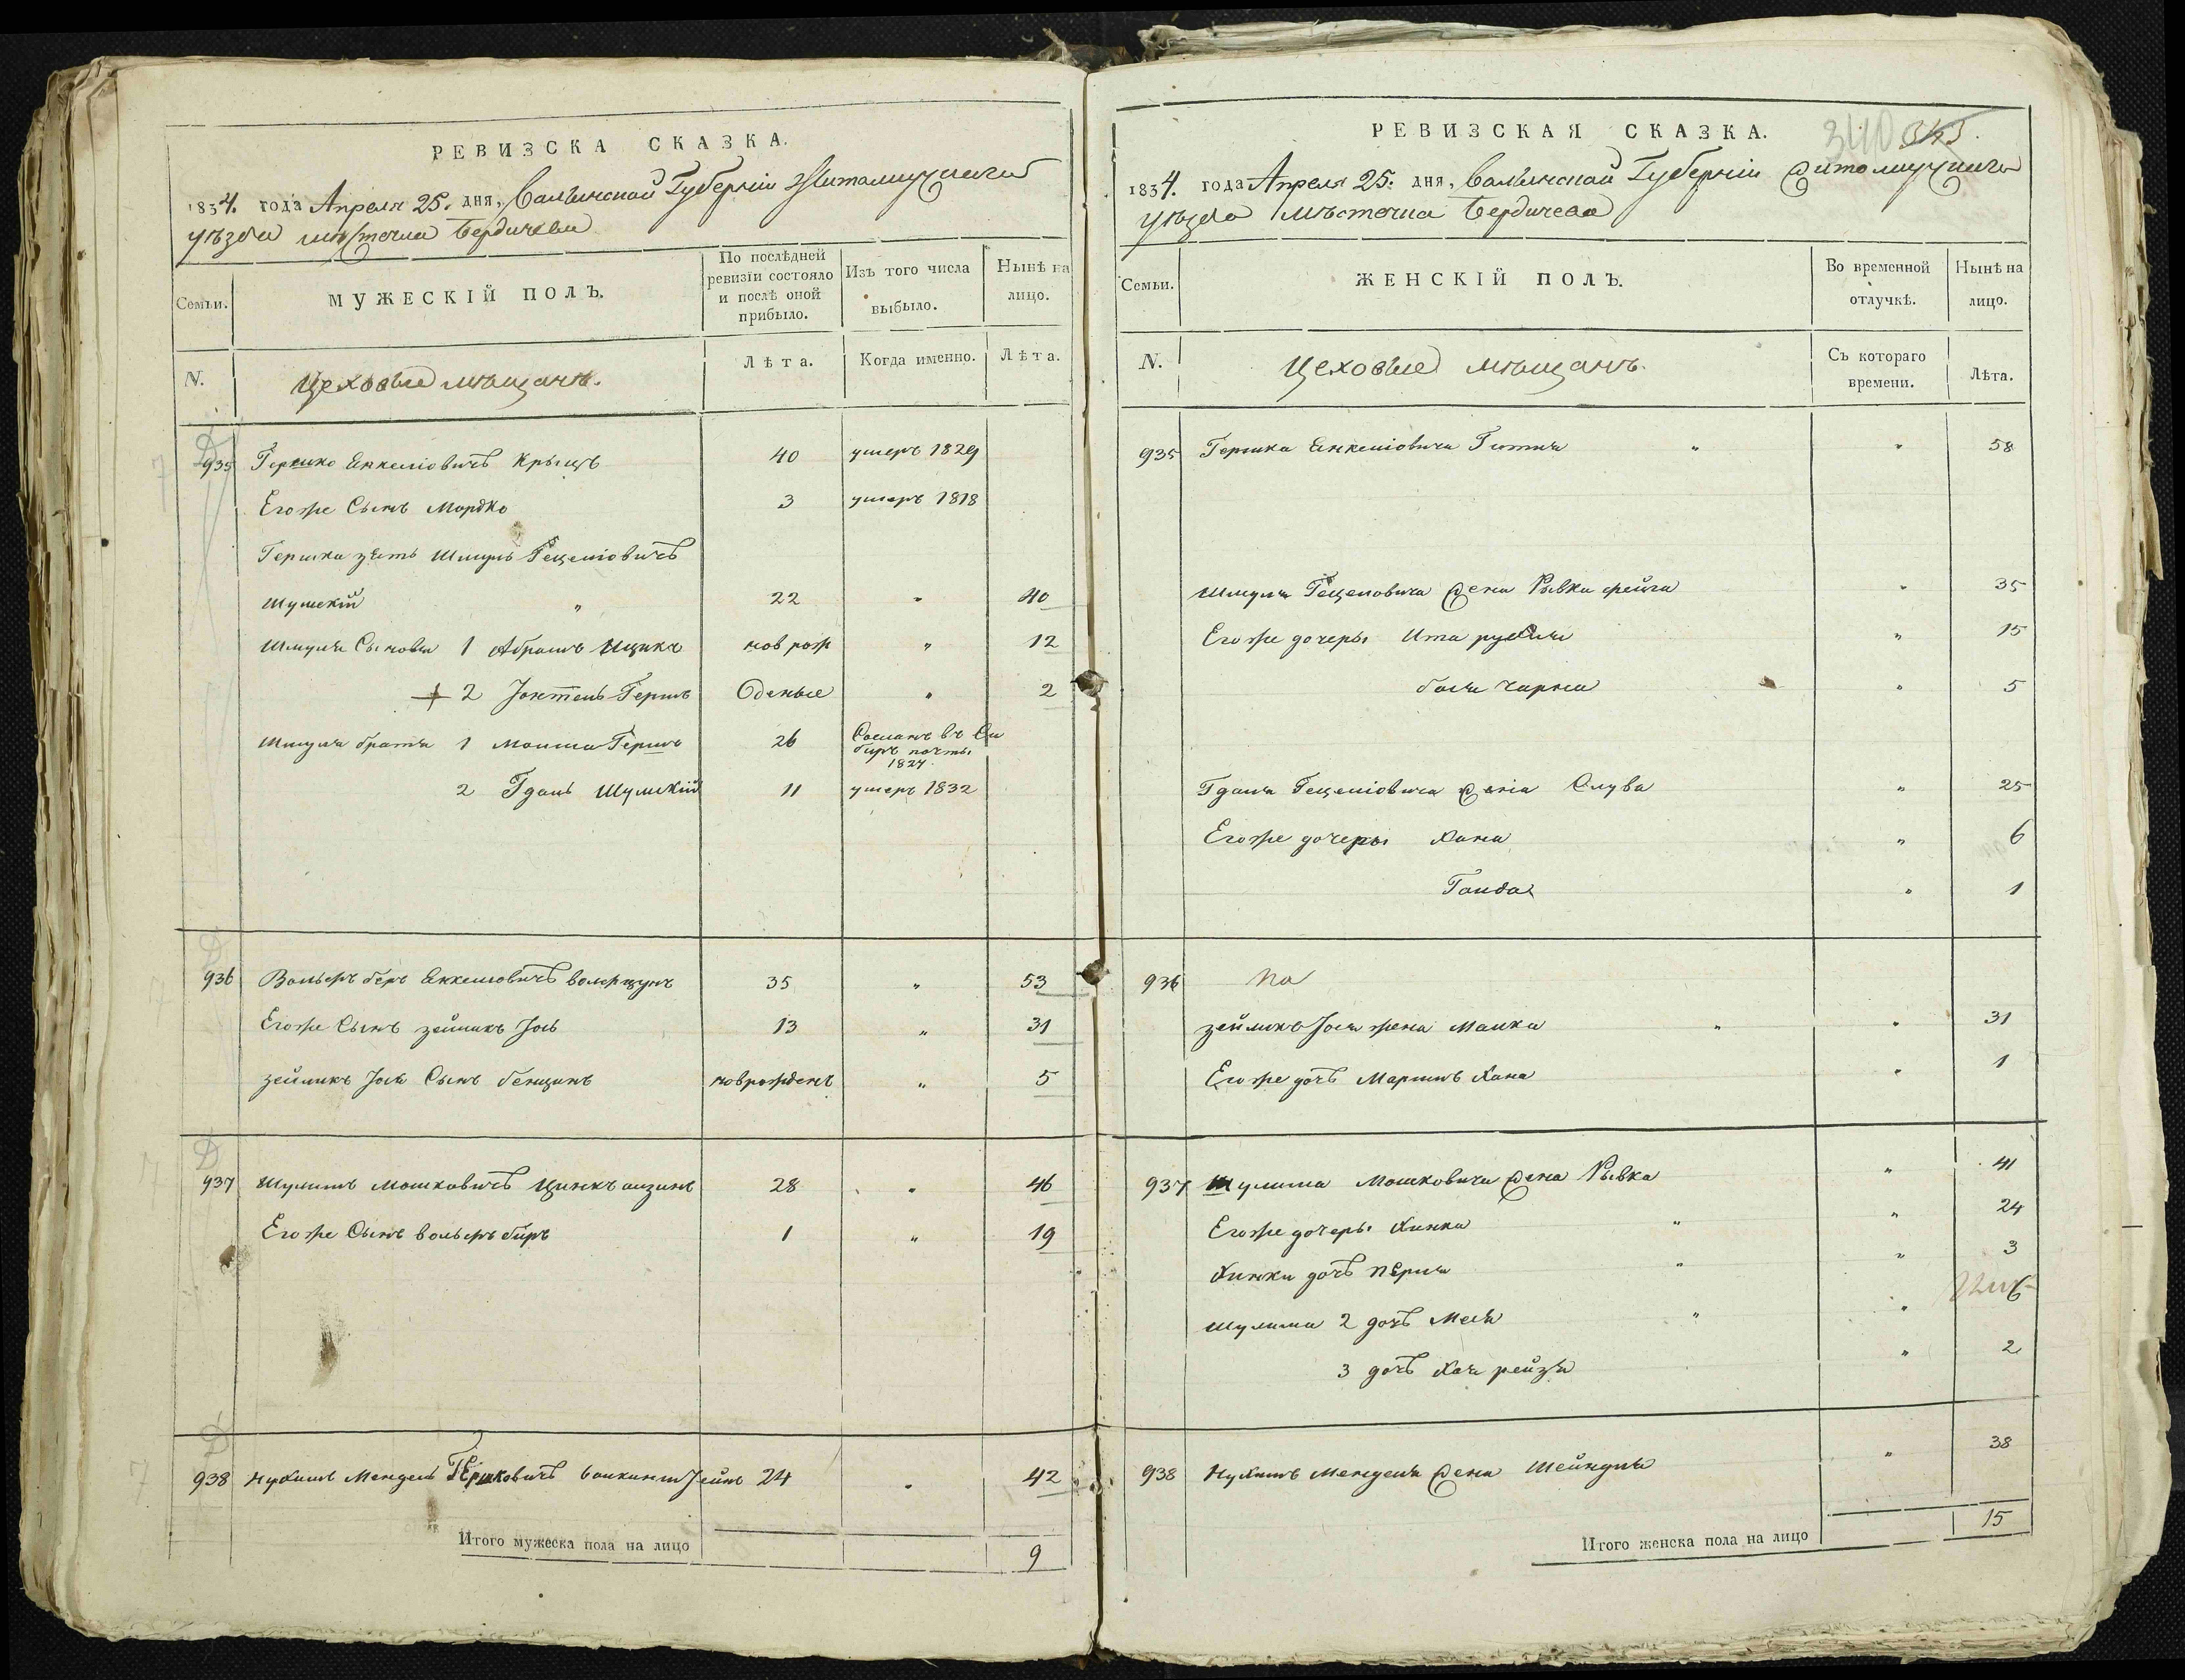 РЕВИЗСКА СКАЗКА.
1834. года Апреля 25. дня, Волынской Губерніи Житомирскаго
уѣзда мѣстечка Бердичева
Семьи.
МУЖЕСКІЙ ПОЛЪ.
По послѣдней ревизіи состояло и послѣ оной прибыло.
Изъ того числа выбыло.
Нынѣ на лицо.
N.
Цеховые мѣщанъ.
Лѣта.
Когда именно.
Лѣта.
935 Гершко Енкеліовичъ 40 умеръ 1829
Егоже Сынъ Мордко 3 умеръ 1818
Гершка зять Шмуль Гецеліовичъ
Шумскій " 22 " 40
Шмуля Сыновья 1 Абрамъ Ицикъ нов рож " 12
2 Гершъ Оденые " 2
Шмуля братья 1 Мошко Гершъ 26 Сосланъ въ Си
биръ
1827.
2 Гдаль Шумскій 11 умеръ 1832
936 Вольфъ беръ Енкеліовичъ 35 " 53
Егоже Сынъ зейликъ Іось 13 " 31
зейликъ Іося Сынъ бенционъ новрожденъ " 5
937 Шулимъ Мошковичъ 28 " 46
Егоже Сынъ вольфъ беръ 1 " 19
938 Нухимъ Мендель Гершковичъ 24 " 42
Итого мужеска пола на лицо
9
340
РЕВИЗСКАЯ СКАЗКА.
1834. года Апреля 25. дня, Волынской Губерніи Житомирскаго
уѣзда Мѣстечка Бердичева
Семьи.
ЖЕНСКІЙ ПОЛЪ.
Во временной отлучкѣ.
Нынѣ на лицо.
N.
Цеховые мѣщанъ.
Съ котораго времени.
Лѣта.
935 Гершка Енкеліовича Гитля " " 58
Шмуля Гецеловича жена Рывка фейга " 35
Егоже дочеры Ита рухля " 15
бася чарна " 5
Гдаля Гецеліовича жена Слува " 25
Егоже дочеры Хана " 6
" 1
936
зейликъ Іося жена Малка " " 31
Егоже дочъ Хана " 1
937 Шулима Мошковича жена Рывка " 41
Егоже дочеры Хинка " " 24
Хинки дочъ Перля " " 3
Шулима 2 дочъ " " 6
3 дочъ Хая рейзя " 2
938 Нухимъ Менделя жена Шейндля " 38
Итого женска пола на лицо
15